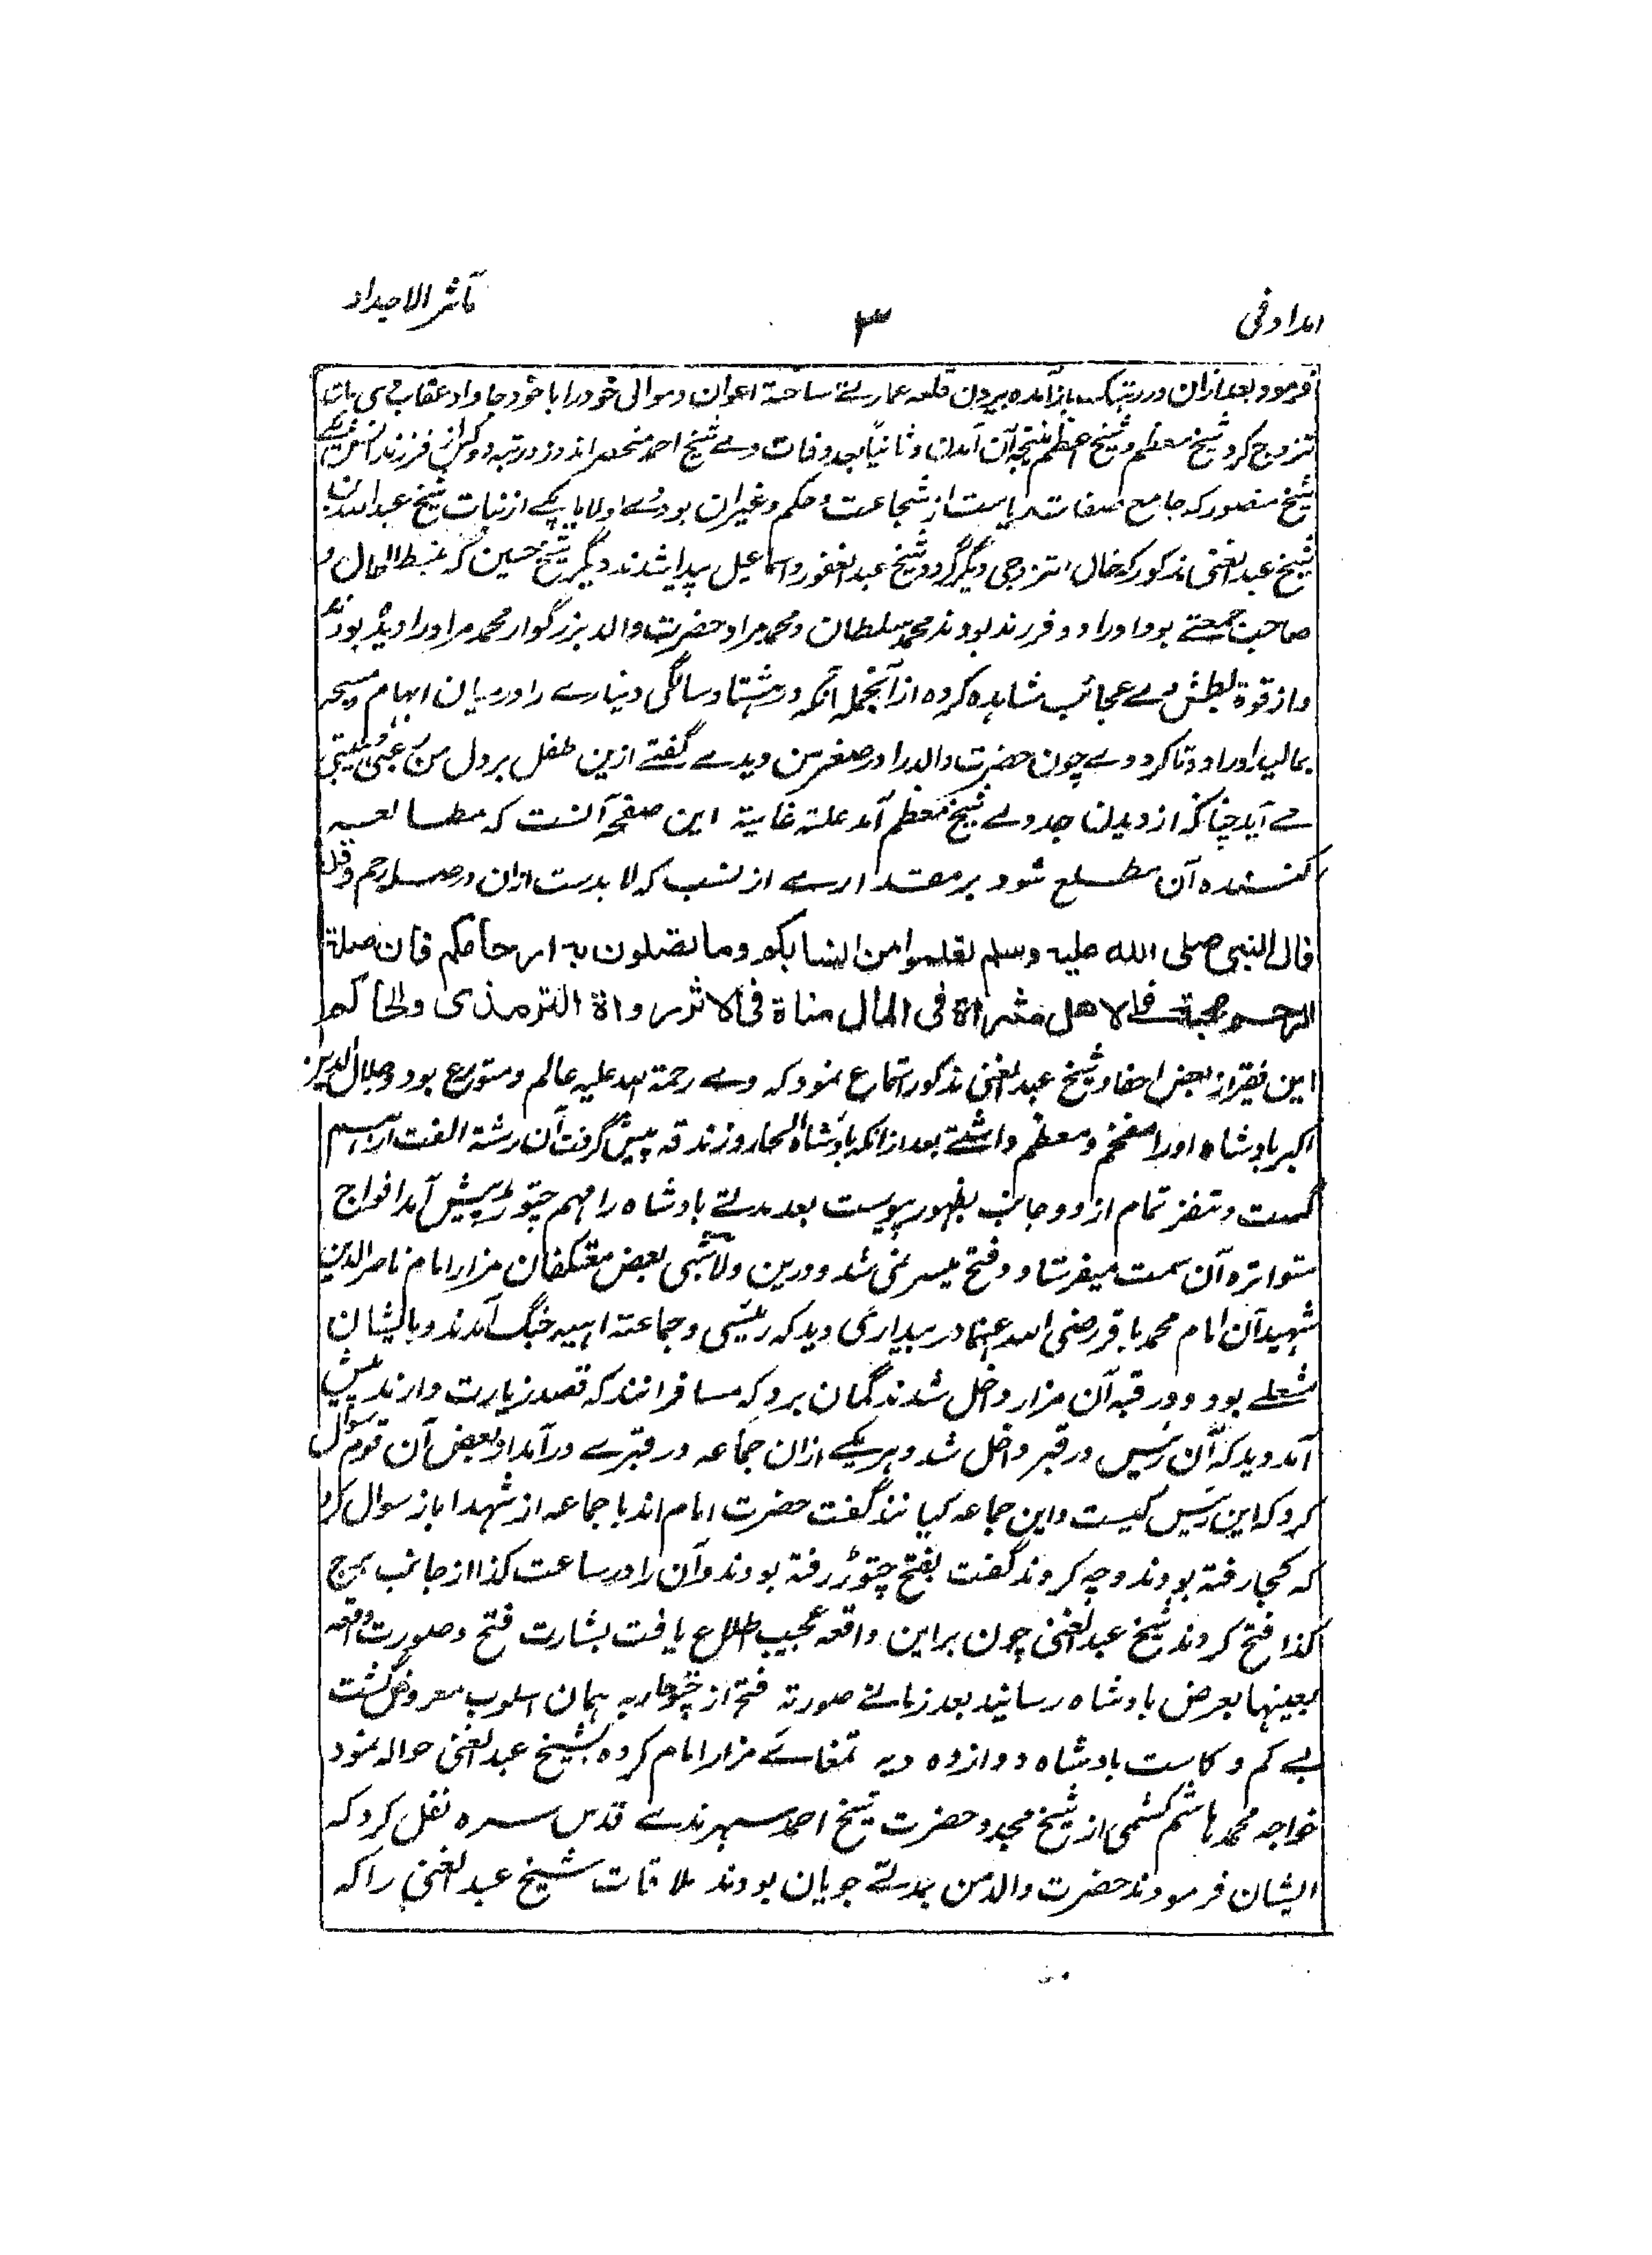 امداد فی
۳
مآثر الاجداد
فرمود بعد ازان در رہتک باز آمدہ بیرون قلعہ عمارتے ساختہ اعوان و موالی خود را با خود جا داد عقاب وی باز
تزوج کرد شیخ معظم و شیخ اعظم نتیجہ آن آمدند و ثانیاً بعد وفات وے شیخ احمد منحصر اند در
شیخ منصور کہ جامع صفات ریاست از شجاعت و حکم و غیر آن بود وے اولا با یکے از بنات شیخ عبداللہ بن
شیخ عبدالغنی مذکور کہ خال تزوجی دیگر کرد و شیخ عبدالغفور و اسماعیل پیدا شدند دیگر شیخ حسین کہ ضبط المال و
صاحب جمعتے بود او را دو فرزند بودند محمد سلطان و محمد مراد حضرت والد بزرگوار محمد مراد را دیدہ بودند
و از قوة بطش وے عجائب مشاہدہ کردہ از آنجملہ آنکہ در ہشتاد سالگی دینارے را در میان ابہام و مسبحہ
بمالید او را دوتا کرد وے چون حضرت والد را در صغر سن دیدے گفتے ازین طفل بر دل من
مے آید چنانکہ از دیدن جد وے شیخ معظم آمد علتہ غایتہ این صفحہ آنست کہ مطالعہ
کنندہ آن مطلع شود بر مقدارے از نسب کہ لا بدست ازان در صلہ رحم وقد
قال النبی صلی الله علیہ وسلم تعلموا من انسابکم وما تصلون بہ ارحامکم فان صلۃ
الرحم محبۃ فی الاھل مثراۃ فی المال مناۃ فی الاثر رواۃ الترمذی والحاکم
این فقیر از بعض احفاد شیخ عبدالغنی مذکور استماع نمود کہ وے رحمۃ اللہ علیہ عالم و متورع بود و جلال الدین
اکبر بادشاہ او را مفخم و معظم داشتے بعد ازانکہ بادشاہ الحاد و زندقہ پیش گرفت آن رشتہ الفت از ہم
گسست و تنفر تمام از دو جانب بظہور پیوست بعد مدتے بادشاہ را مہم چتوڑ پیش آمد افواج
متواترہ آن سمت میفرستاد و فتح میسر نمی شد و درین ولا شبی بعض معتکفان مزار امام ناصر الدین
شہید آن امام محمد باقر رضی اللہ عنہما در بیداری دید کہ رئیسی و جماعتہ اہبہ جنگ آمدند و با ایشان
مشعلے بود و در قبہ آن مزار داخل شدند گمان برد کہ مسافرانند کہ قصد زیارت دارند پیش
آمد و دید کہ آن رئیس در قبر داخل شد و ہر یکے ازان جماعہ در قبرے در آمد از بعض آن قوم سوال
کرد کہ این رئیس کیست و این جماعہ کیانند گفت حضرت امام اند با جماعہ از شہدا باز سوال کرد
کہ کجا رفتہ بودند و چہ کردند گفت بفتح چتوڑ رفتہ بودند و آن را در ساعت کذا از جانب برج
کذا فتح کردند شیخ عبدالغنی چون بر این واقعہ عجیب اطلاع یافت بشارت فتح و صورت واقعہ
بعینہا بعرض بادشاہ رسانید بعد زمانے صورتہ فتح از چتوڑ بہ ہمان اسلوب معروض گشت
بے کم و کاست بادشاہ دوازدہ دیہ تمغاے مزار امام کردہ بشیخ عبدالغنی حوالہ نمود
خواجہ محمد ہاشم کشمی از شیخ مجدد حضرت شیخ احمد سہرندے قدس سرہ نقل کرد کہ
ایشان فرمودند حضرت والد من مدتے جویان بودند ملاقات شیخ عبدالغنی را کہ